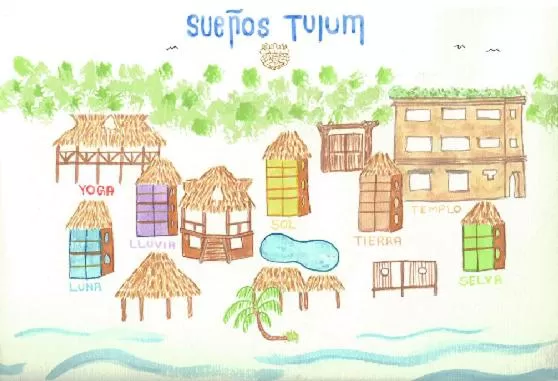 Sueños Tulum
YOGA
LLUVIA
SOL
TIERRA
TEMPLO
LUNA
SELVA